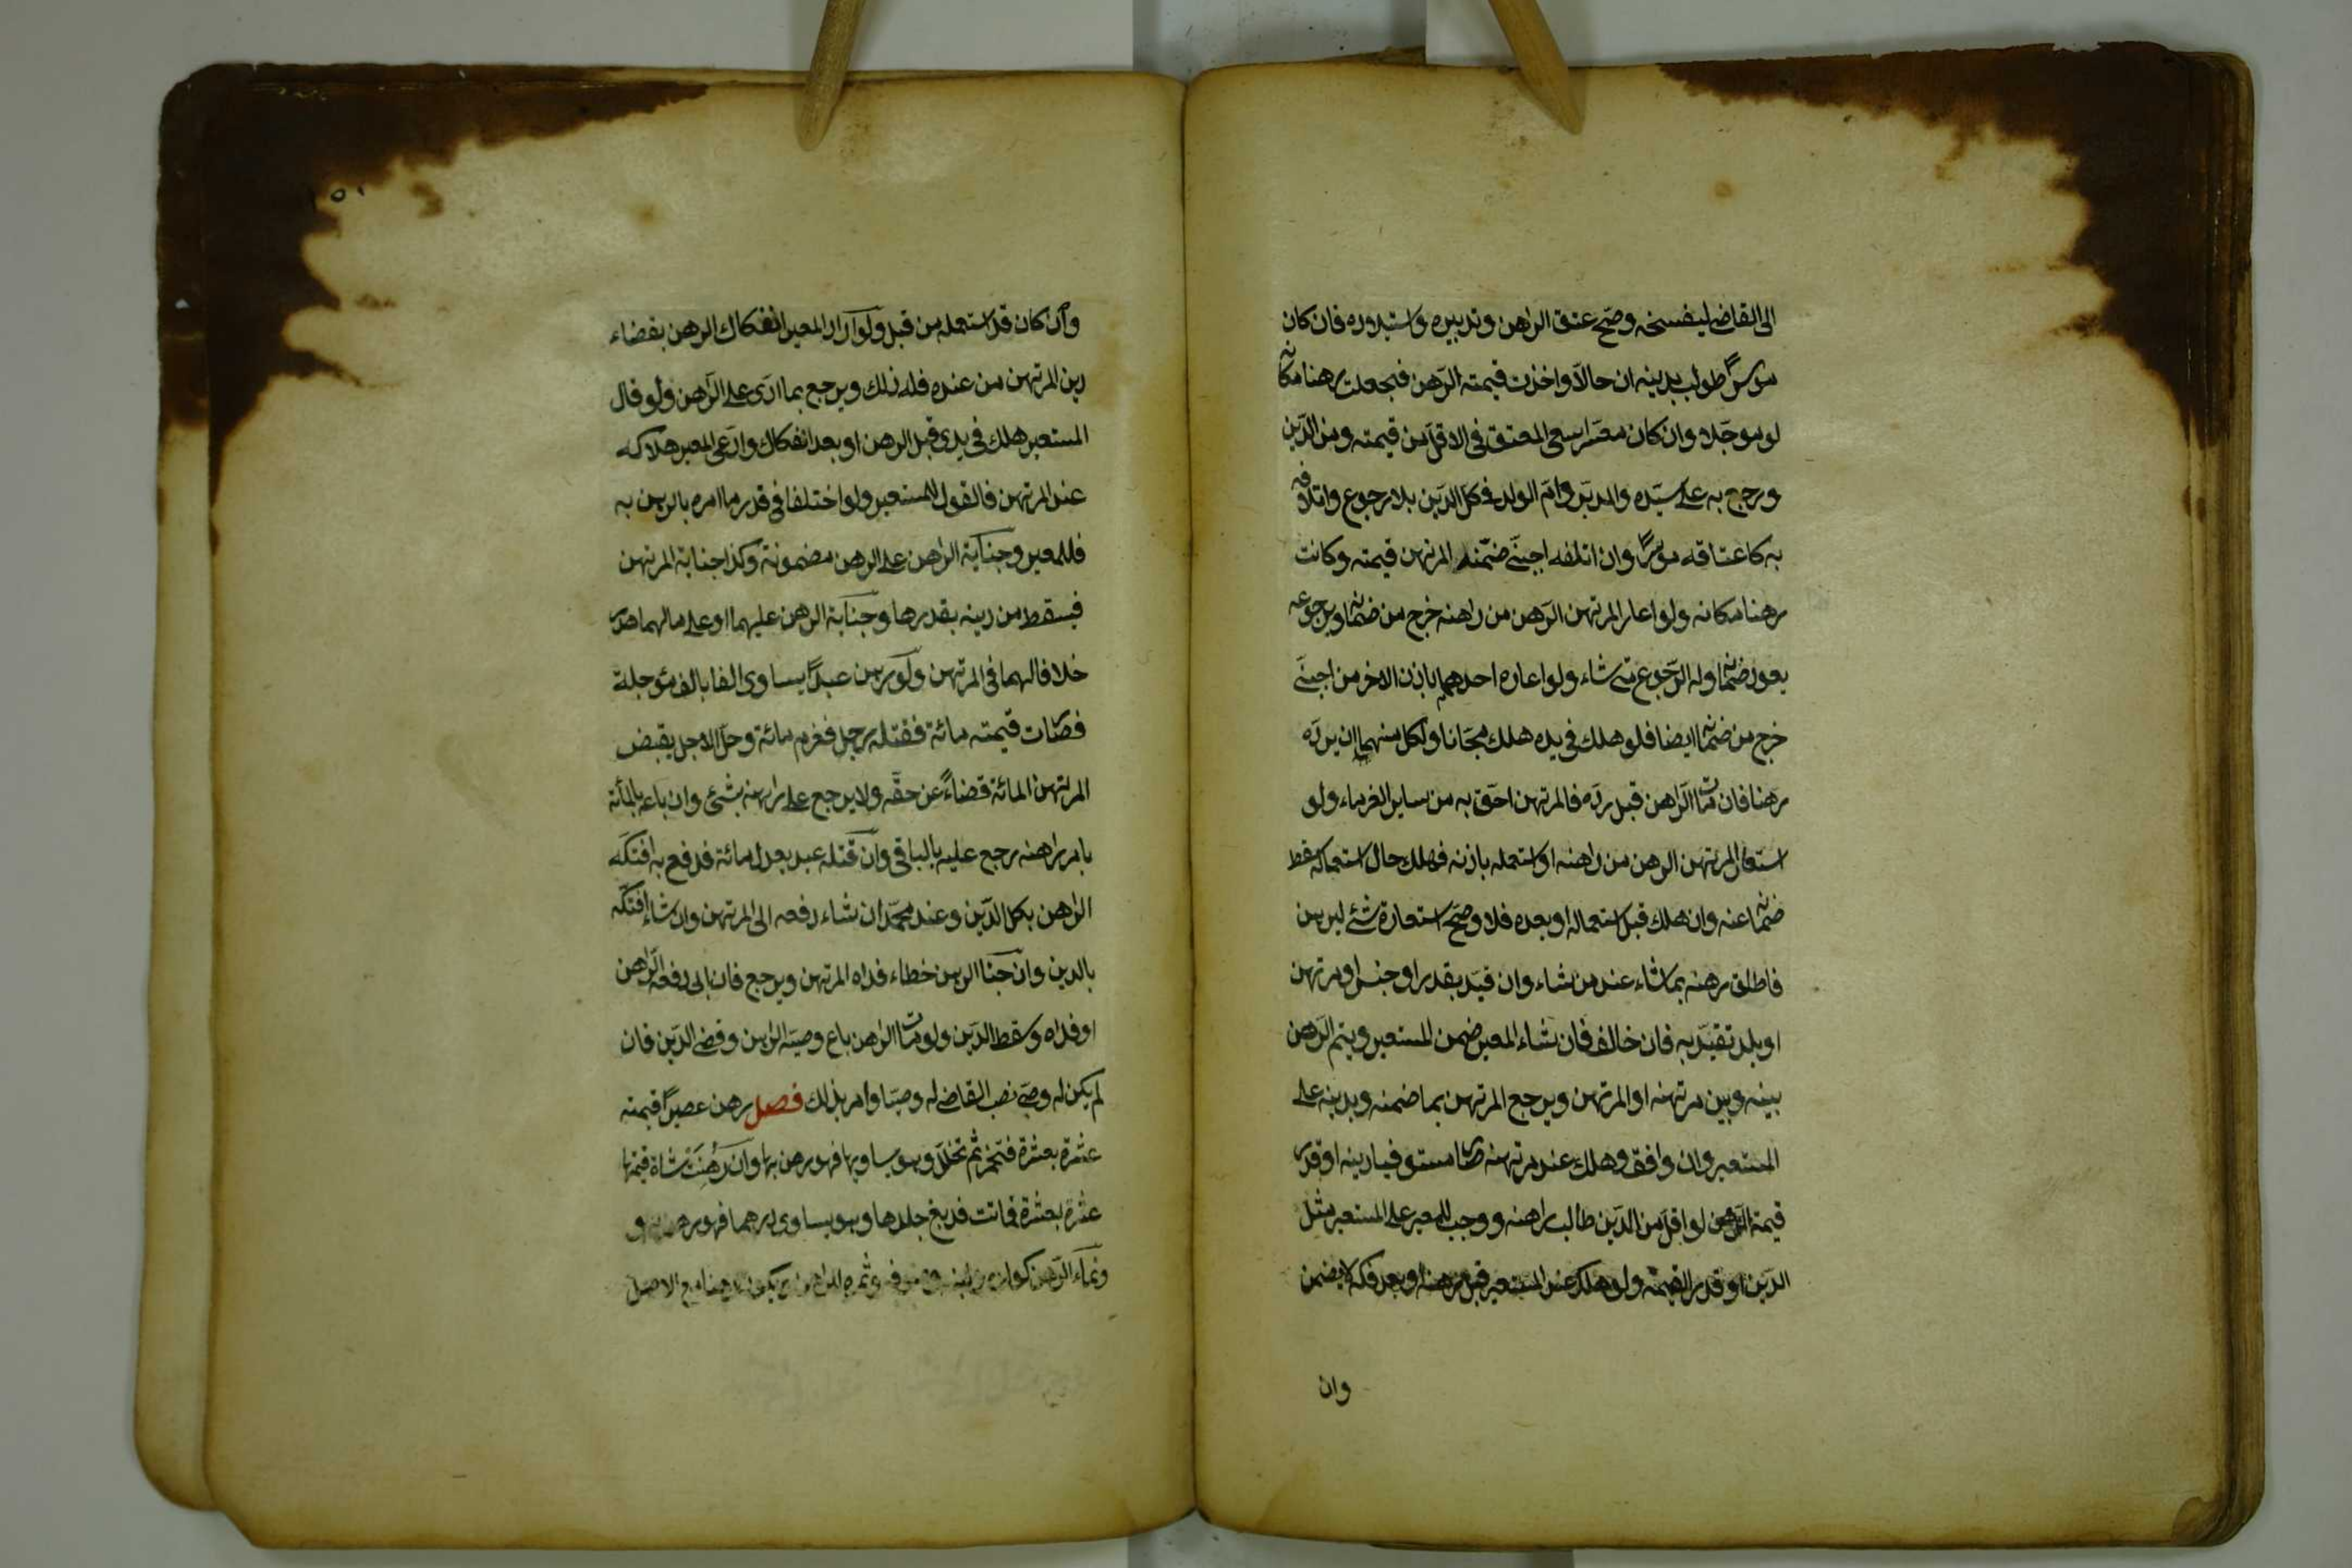 الى القاضى ليفسخه وصح عتق الراهن وتدبيره واستيلاده فان كان
موسرًا طولب بدينه ان حالًا واخذت قيمته الرهن فجعلت رهنا مكانه
لو موجلا وان كان معسرا سعى المعتق فى الاقل من قيمته ومن الدين
ورجع به على سيده والمدبر وام الولد فى كل الدين بلا رجوع واتلافه
به كاعتاقه موسرًا وان اتلفه اجنبى ضمنه المرتهن قيمته وكانت
رهنا مكانه ولو اعار المرتهن الرهن من راهنه خرج من ضمانه وبرجوعه
يعود ضمانه وله الرجوع متى شاء ولو اعاره احدهما باذن الاخر من اجنبى
خرج من ضمانه ايضا فلو هلك فى يده هلك مجانا ولكل منهما ان يرده
رهنا فان مات الراهن قبل رده فالمرتهن احق به من ساير الغرماء ولو
استعار المرتهن الرهن من راهنه او استعمله باذنه فهلك حال استعماله سقط
ضمانه عنه وان هلك قبل استعماله او بعده فلا وصح استعارة شئ ليرهن
فاطلق رهنه بما شاء عند من شاء وان قيد بقدر او جنس او مرتهن
او بلد تقيد به فان خالف فان شاء المعير ضمن المستعير ويتم الرهن
بينه وبين مرتهنه او المرتهن ويرجع المرتهن بما ضمنه وبدينه على
المستعير وان وافق وهلك عند مرتهنه صار مستوفيا دينه او قدر
قيمة الرهن لو اقل من الدين طالب راهنه ووجب للمعير على المستعير مثل
الدين او قدر القيمة ولو هلك عند المستعير قبل رهنه او بعد فكه لا يضمن
وان
وان كان قد استعمله من قبل ولو اراد المعير انفكاك الرهن بقضاء
دين المرتهن من عنده فله ذلك ويرجع بما ادى على الراهن ولو قال
المستعير هلك فى يدى قبل الرهن او بعد انفكاك وادعى المعير هلاكه
عند المرتهن فالقول للمستعير ولو اختلفا فى قدر ما امره بالرهن به
فللمعير وجناية الراهن على الرهن مضمونة وكذا جناية المرتهن
فيسقط من دينه بقدرها وجناية الرهن عليهما او على مالهما هدر
خلافا لهما فى المرتهن ولو رهن عبدًا يساوى الفا بالف مؤجلة
فصارت قيمته مائة فقتله رجل فغرم مائة وحل الاجل يقبض
المرتهن المائة قضاءً عن حقه ولا يرجع على راهنه بشئ وان باعه بالمأئة
بامر راهنه رجع عليه بالباقى وان قتله عبد يعدل مائة فدفع به افتكه
الراهن بكل الدين وعند محمد ان شاء دفعه الى المرتهن وان شاء افتكه
بالدين وان جنا الرهن خطاء فداه المرتهن ويرجع فان ابى دفعه الراهن
او فداه وسقط الدين ولو مات الراهن باع وصيه الرهن وقضى الدين فان
لم يكن له وصى نصب القاضى له وصيا وامر بذلك فصل رهن عصيرًا قيمته
عشرة بعشرة فتخمر ثم تخلل وهو يساويها فهو رهن بها وان رُهِنَتْ شاة قيمتها
عشرة بعشرة فماتت فدبغ جلدها وهو يساوى درهما فهو رهن به و
ونماء الرهن كولده ولبنه وصوفه وثمره للراهن ويكون رهنا مع الاصل